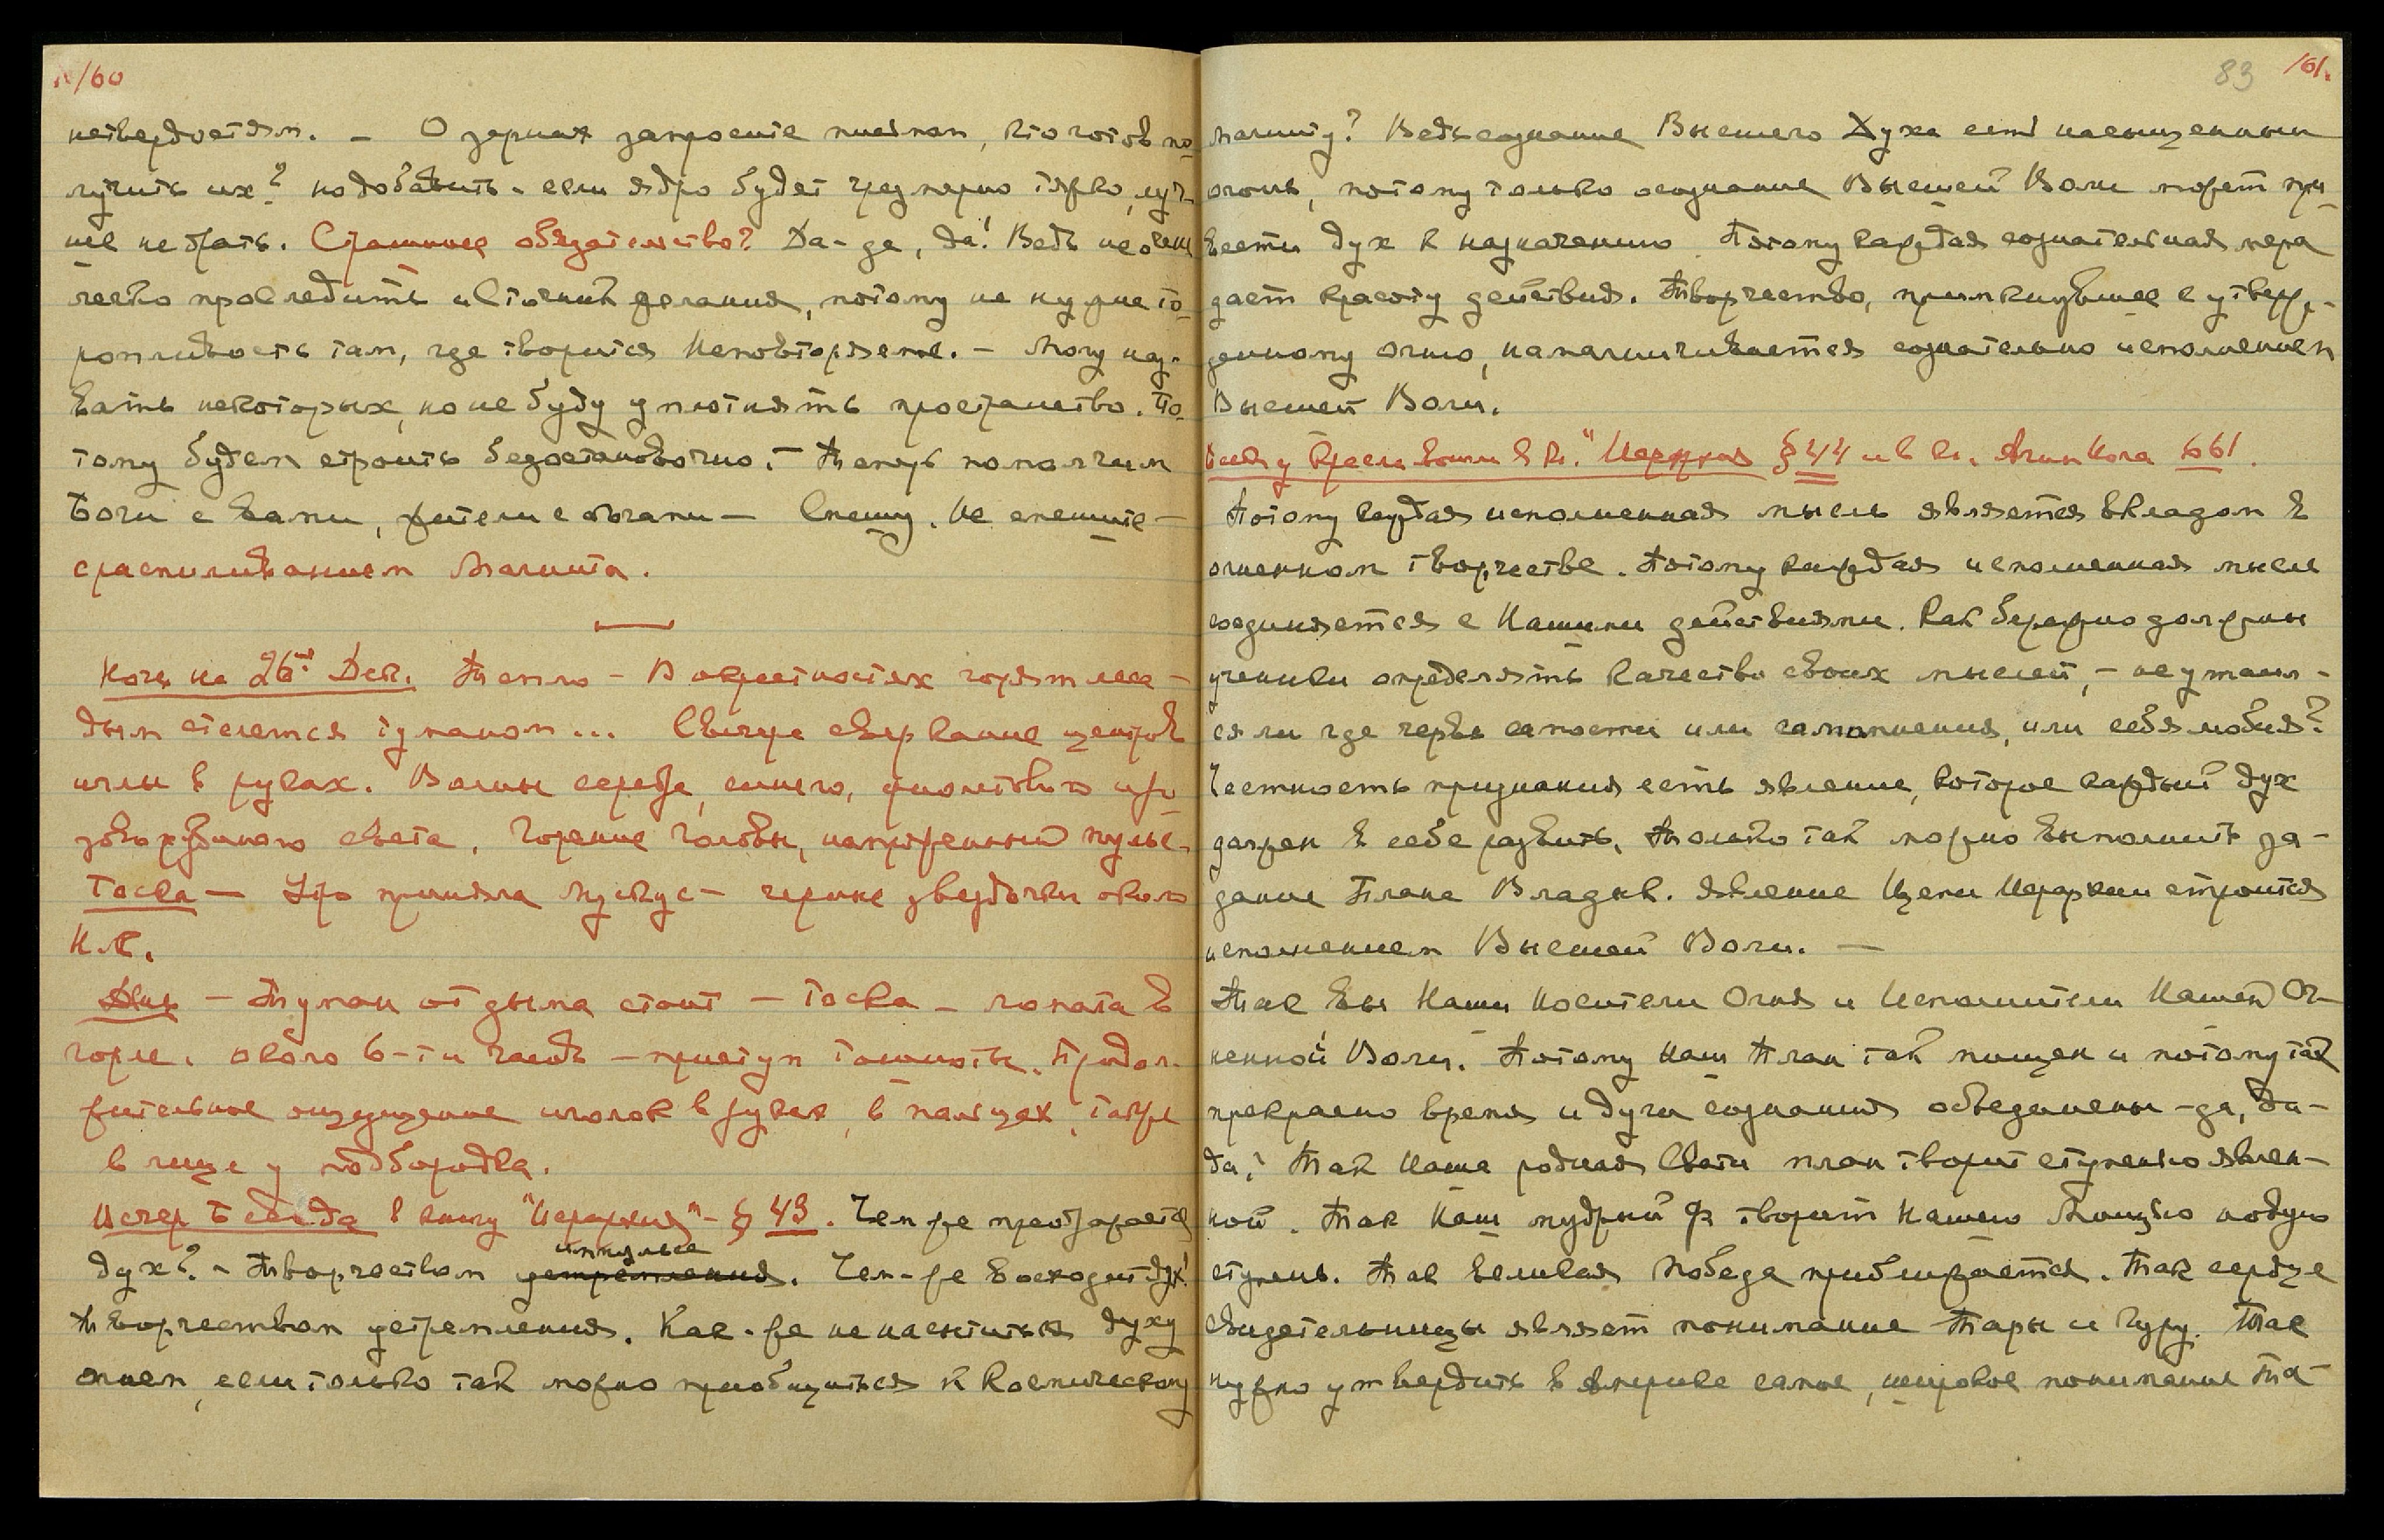 /60
нетвердостям. — О зернах запросите письмом, кто готов по-
лучить их? Но добавить — если ядро будет чрезмерно тяжко, луч-
ше не брать. Страшное обязательство? Да-да, да! Ведь не очень
легко проследить источник желания, потому не нужна то-
ропливость там, где творится Неповторяемое. — Могу наз-
вать некоторых, но не буду уплотнять пространство. По-
тому будем строить безостановочно. — Теперь помолчим
Боги с вами, жители с обычаями — Спешу. Не спешите —
с распиливанием Магнита.
Ночь на 26ое Дек. Тепло — В окрестностях горят леса —
дым стелется туманом... Свыше сверкание центров
иглы в руках. Волны серебра, синего, фиолетового и
света. Горение головы, напряженный пульс.
Тоска — Утро приняла мускус — черные звездочки около
Н.К.
День — Туман от дыма стоит — тоска — лопата в
горле. Около 6-ти часов — приступ тошноты. Продол-
жительное ощущение иголок в руках, в пальцах, также
в лице у подбородка.
Вечер Беседа в книгу "Иерархия" — § 43. Чем же преображается
дух? — Творчеством устремления. импульса Чем-же восходит дух?
Творчеством устремления. Как-же не насытиться духу
огнем, если только так можно приобщиться к Космическому
83 161.
Магниту? Ведь сознание Высшего Духа есть насыщенный
огонь, потому только осознание Высшей Воли может при-
вести дух к назначению. Потому каждая сознательная мера
дает красоту действия. Творчество, примкнувшее к утверж-
денному огню, намагничивается сознательно исполнением
Высшей Воли.
Беседа у Кресла вошли в кн. "Иерархия § 44 и в кн. Агни Иога 661.
Потому каждая исполненная мысль является вкладом в
огненном творчестве. Потому каждая исполненная мысль
соединяется с Нашими действиями. Как бережно должны
ученики определять качество своих мыслей, — не утаил-
ся ли где червь самости или самомнения, или себялюбия?
Честность признания есть явление, которое каждый дух
должен в себе развить. Только так можно выполнить за-
дание Плана Владык. Явление Цепи Иерархии строится
исполнением Высшей Воли. —
Так вы Наши Носители Огня и Исполнители Нашей Ог-
ненной Воли. Потому Наш План так мощен и потому так
прекрасно время и духи сознания объединены — да, да —
да! Так Наша родная Свати план творит ступенью явлен-
ной. Так Наш мудрый Ф творит Нашею Мощью новую
ступень. Так великая Победа приближается. Так сердце
свидетельницы являет понимание Тары и Гуру. Так
нужно утвердить в Америке самое, широкое понимание Та-